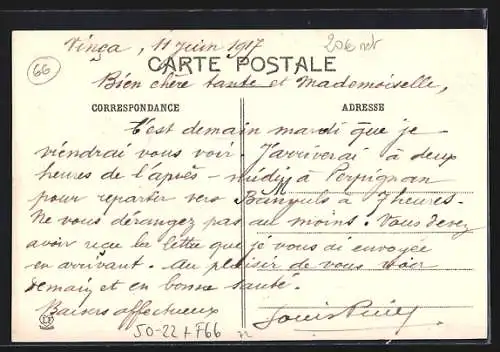 Vinça, 11 Juin 1917
20€ net
66
CARTE POSTALE
Bien chère tante et Mademoiselle,
CORRESPONDANCE
ADRESSE
C'est demain mardi que je
viendrai vous voir. J'arriverai à deux
heures de l'après-midi à Perpignan
M
pour repartir vers Banyuls à 7 heures.
Ne vous dérangez pas au moins. Vous devez
avoir reçu la lettre que je vous ai envoyée
en arrivant. Au plaisir de vous voir
demain et en bonne santé.
Baisers affectueux
Louis
50-22 + F66